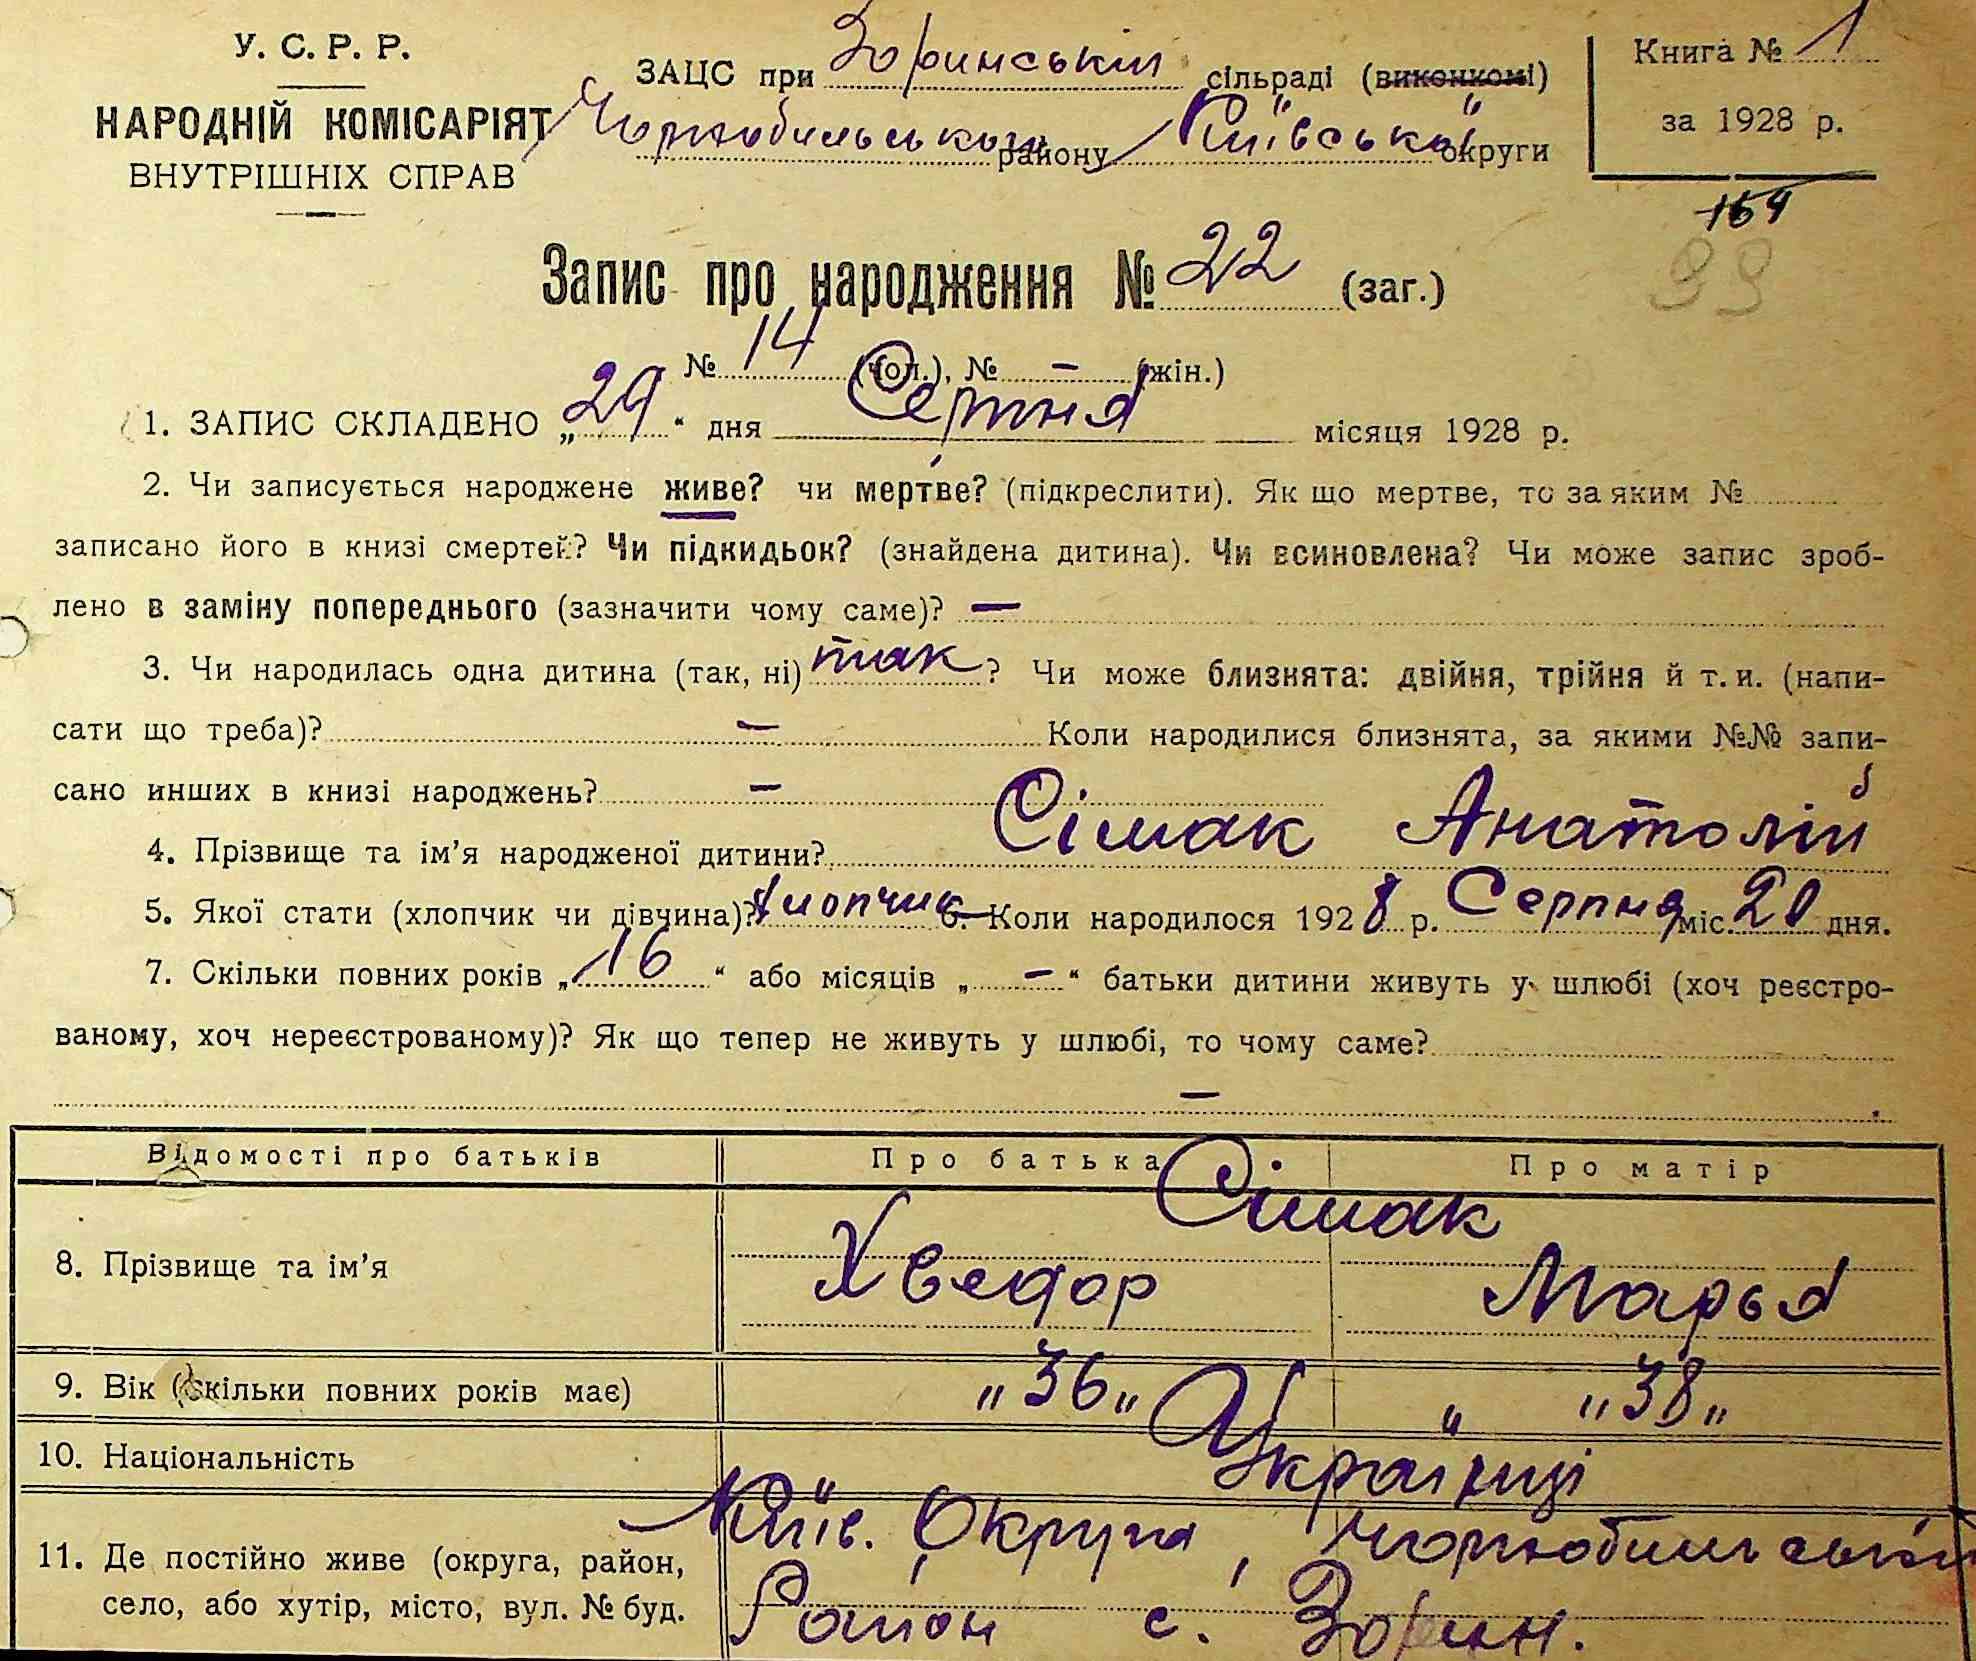 У. С. Р. Р.
НАРОДНІЙ КОМІСАРІЯТ
ВНУТРІШНІХ СПРАВ
ЗАЦС при Зоринській сільраді (виконкомі)
Чорнобильського району Київської округи
Книга № 1
за 1928 р.
164
99
Запис про народження № 22 (заг.)
№ 14 (чол.), № – (жін.)
1. ЗАПИС СКЛАДЕНО „29“ дня Серпня місяця 1928 р.
2. Чи записується народжене живе? чи мертве? (підкреслити). Як що мертве, то за яким №
записано його в книзі смертей? Чи підкидьок? (знайдена дитина). Чи всиновлена? Чи може запис зроб-
лено в заміну попереднього (зазначити чому саме)? —
3. Чи народилась одна дитина (так, ні) так ? Чи може близнята: двійня, трійня й т. и. (напи-
сати що треба)? — Коли народилися близнята, за якими №№ запи-
сано инших в книзі народжень? —
4. Прізвище та ім’я народженої дитини? Сімак Анатолій
5. Якої стати (хлопчик чи дівчина)? Хлопчик 6. Коли народилося 1928 р. Серпня міс. 20 дня.
7. Скільки повних років „16“ або місяців „—“ батьки дитини живуть у шлюбі (хоч реєстро-
ваному, хоч нереєстрованому)? Як що тепер не живуть у шлюбі, то чому саме?
—
Відомості про батьків Про батька Про матір
8. Прізвище та ім’я Сімак
Хведор Марья
9. Вік (скільки повних років має) „36„ „ „38„
10. Національність Українці
11. Де постійно живе (округа, район, Київ. Округа, Чорнобильський
село, або хутір, місто, вул. № буд. Район с. Зорин.